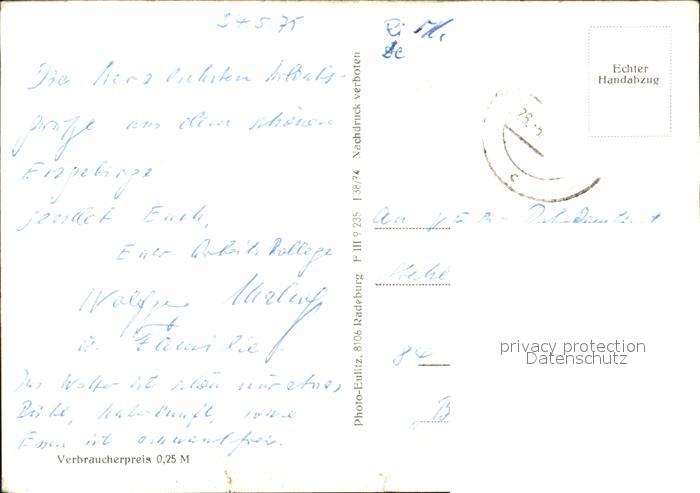 24 5 75
Die herzlichsten Urlaubs-
grüße aus dem schönen
Erzgebirge
sendet Euch,
Euer Arbeitskollege
Wolfgang
u. Familie.
Das Wetter ist schön nur etwas
Kühl, Unterkunft, sowie
Essen ist einwandfrei.
Verbraucherpreis 0,25 M
Photo-Eulitz, 8106 Radeburg F III 9 235 I 38/74 Nachdruck verboten
Echter
Handabzug
26.
c
An
privacy protection
Datenschutz